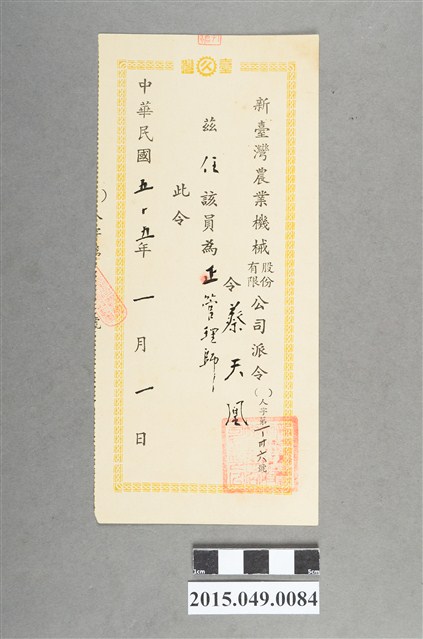 新臺灣農業機械股份有限公司派令
（ ）人字第
令 蔡天凰
茲任該員為正管理師
此令
中華民國五十九年一月一日
1cm
5cm
2015.049.0084